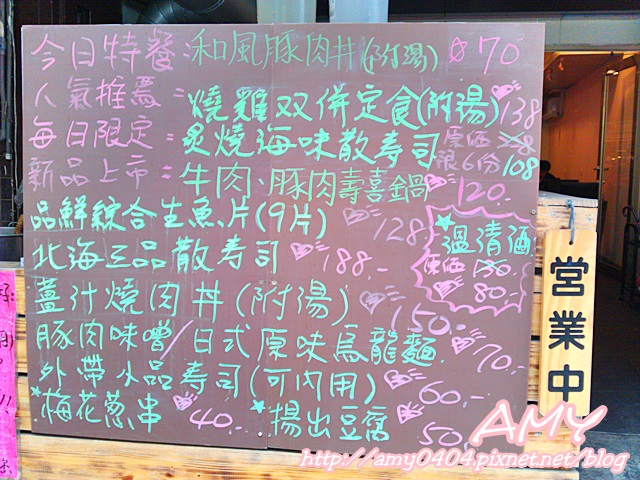 今日特餐:和風豚肉丼(附湯) 70
人氣推薦=燒雞双併定食(附湯)138
每日限定:炙燒海味散壽司 原價 限6份 108
新品上市:牛肉、豚肉壽喜鍋 120.
品鮮綜合生魚片(9片) 128
溫清酒
原價 130.
80.
北海三品散壽司 188.-
薑汁燒肉丼(附湯) 150.-
豚肉味噌/日式原味烏龍麵 70.
外帶小品壽司(可內用) 60.-
*梅花蔥串 40.. *揚出豆腐 50.
營業中
AMY
http://amy0404.pixnet.net/blog